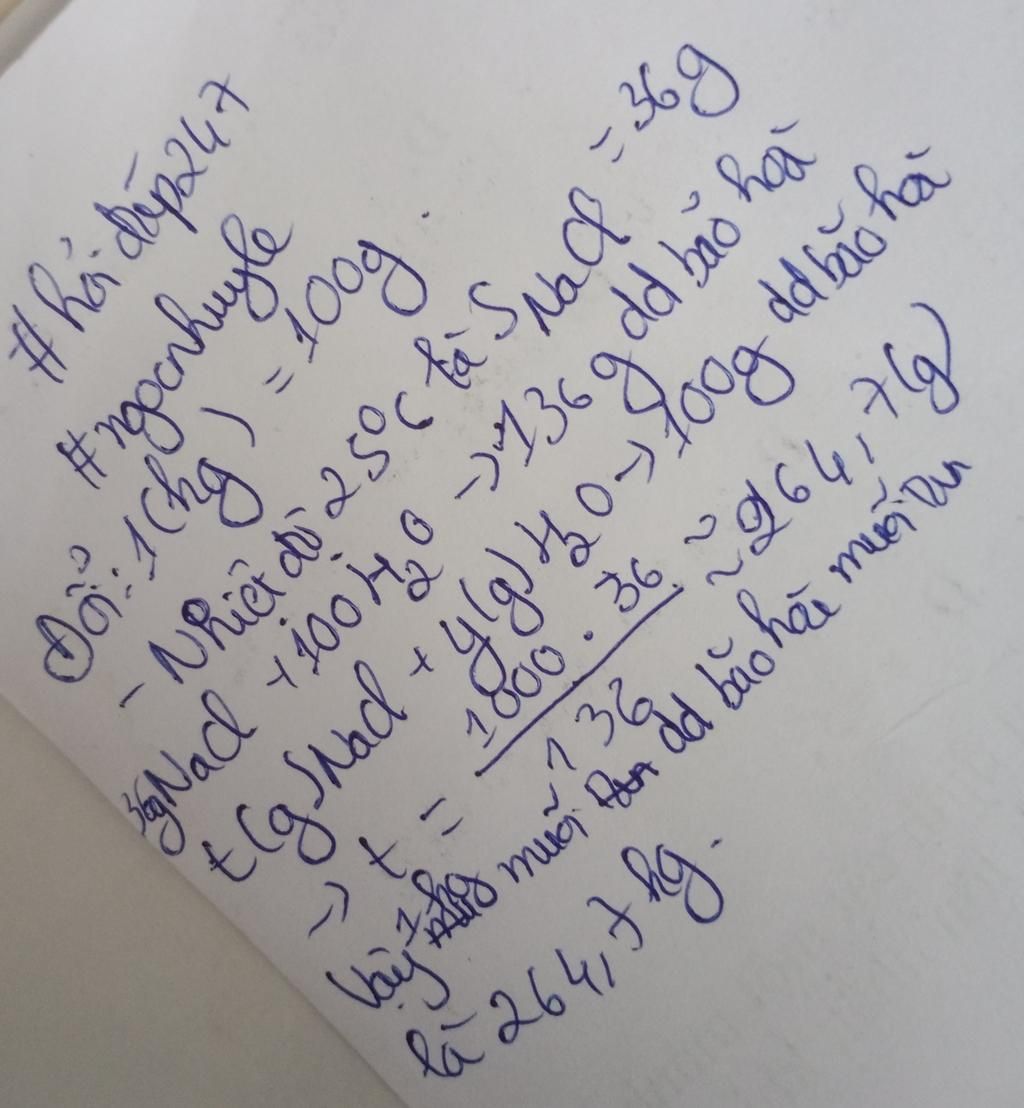 #hỏi đáp247
#ngocnhuyle
Đổi: 1(kg) = 100g.
- Nhiệt độ 25°C là SNaCl = 36g
36gNaCl + 100 H₂O → 136g dd bão hoà
t(g)NaCl + y(g) H₂O → 100g dd bão hoà
→ t = 1000.36 / 136 ≈ 264,7(g)
Vậy 1kg muối dd bão hoà muối ăn
là 264,7kg.